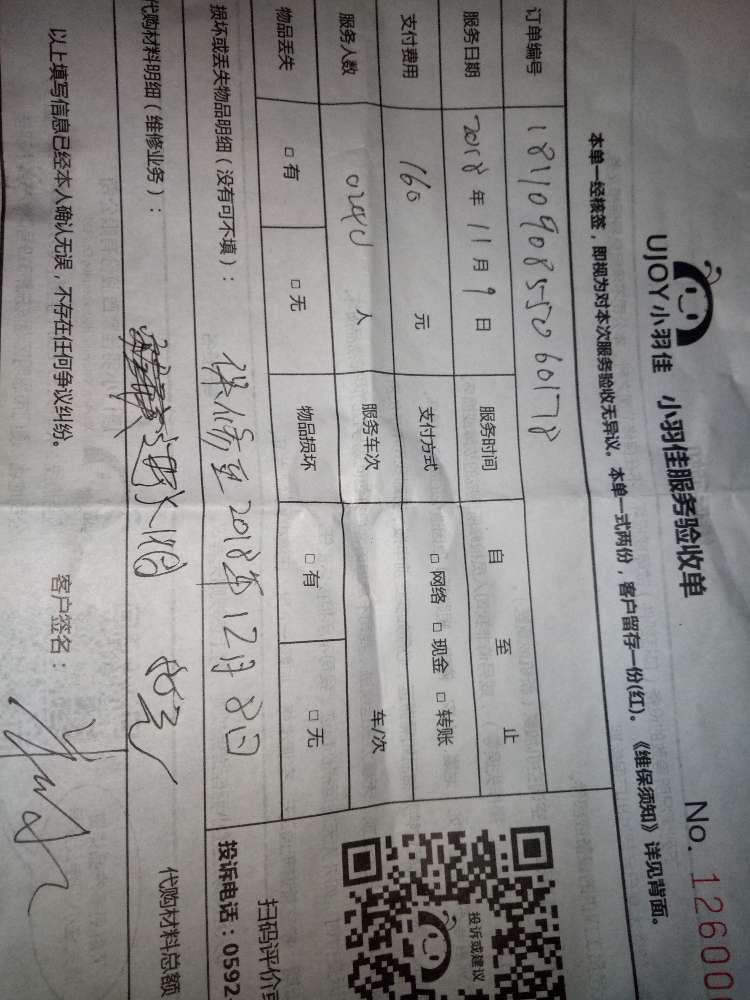 UJOY小羽佳 小羽佳服务验收单 No. 12600
本单一经核签，即视为对本次服务验收无异议。本单一式两份，客户留存一份(红)。《维保须知》详见背面。
订单编号 1811090855060178
服务日期 2018年11月9日 服务时间 自 至 止
支付费用 160 元 支付方式 □网络 □现金 □转账
服务人数 人 服务车次 车/次
物品丢失 □有 □无 物品损坏 □有 □无
损坏或丢失物品明细（没有可不填）： 保修至2018年12月8日
代购材料明细（维修业务）：
代购材料总额
以上填写信息已经本人确认无误，不存在任何争议纠纷。 客户签名：
投诉或建议
扫码评价或
投诉电话：0592